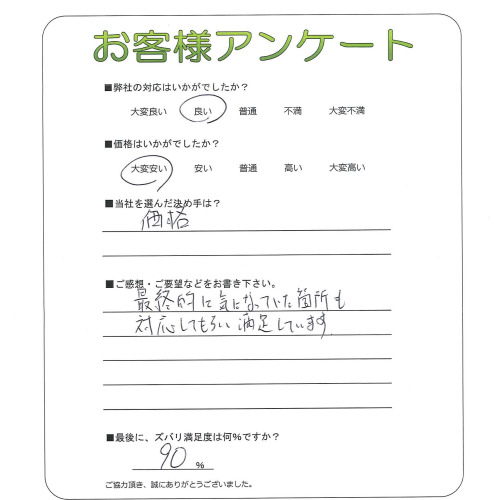 お客様アンケート
■弊社の対応はいかがでしたか?
大変良い 良い 普通 不満 大変不満
■価格はいかがでしたか?
大変安い 安い 普通 高い 大変高い
■当社を選んだ決め手は?
価格
■ご感想・ご要望などをお書き下さい。
最終的に気になっていた箇所も
対応してもらい満足しています
■最後に、ズバリ満足度は何%ですか?
90 %
ご協力頂き、誠にありがとうございました。